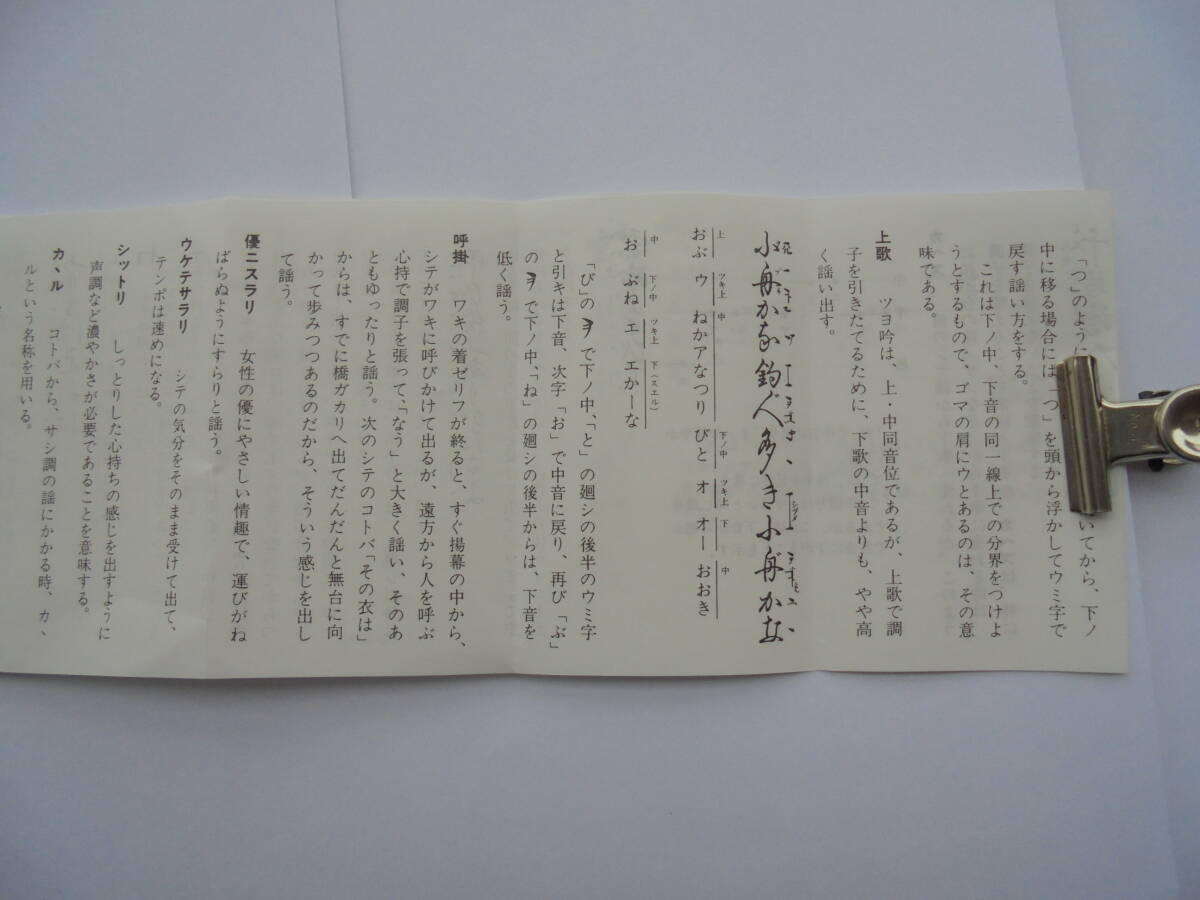 「つ」のように いてから、下ノ
中に移る場合には「つ」を頭から浮かしてウミ字で
戻す謡い方をする。
これは下ノ中、下音の同一線上での分界をつけよ
うとするもので、ゴマの肩にウとあるのは、その意
味である。
上歌　ツヨ吟は、上・中同音位であるが、上歌で調
子を引きたてるために、下歌の中音よりも、やや高
く謡い出す。
小舟かな釣人多き小舟かな
上 ツキ上 中 下ノ中 ツキ上 下 中
おぶ ウ ねかアなつり びと オ オー おおき
中 下ノ中 ツキ上 下（スエル）
お ぶね エ エかーな
「び」のヲで下ノ中、「と」の廻シの後半のウミ字
と引キは下音、次字「お」で中音に戻り、再び「ぶ」
のヲで下ノ中、「ね」の廻シの後半からは、下音を
低く謡う。
呼掛　ワキの着ゼリフが終ると、すぐ揚幕の中から、
シテがワキに呼びかけて出るが、遠方から人を呼ぶ
心持で調子を張って、「なう」と大きく謡い、そのあ
ともゆったりと謡う。次のシテのコトバ「その衣は」
からは、すでに橋ガカリへ出てだんだんと無台に向
かって歩みつつあるのだから、そういう感じを出し
て謡う。
優ニスラリ　女性の優にやさしい情趣で、運びがね
ばらぬようにすらりと謡う。
ウケテサラリ　シテの気分をそのまま受けて出て、
テンポは速めになる。
シットリ　しっとりした心持ちの感じを出すように
声調など濃やかさが必要であることを意味する。
カヽル　コトバから、サシ調の謡にかかる時、カヽ
ルという名称を用いる。